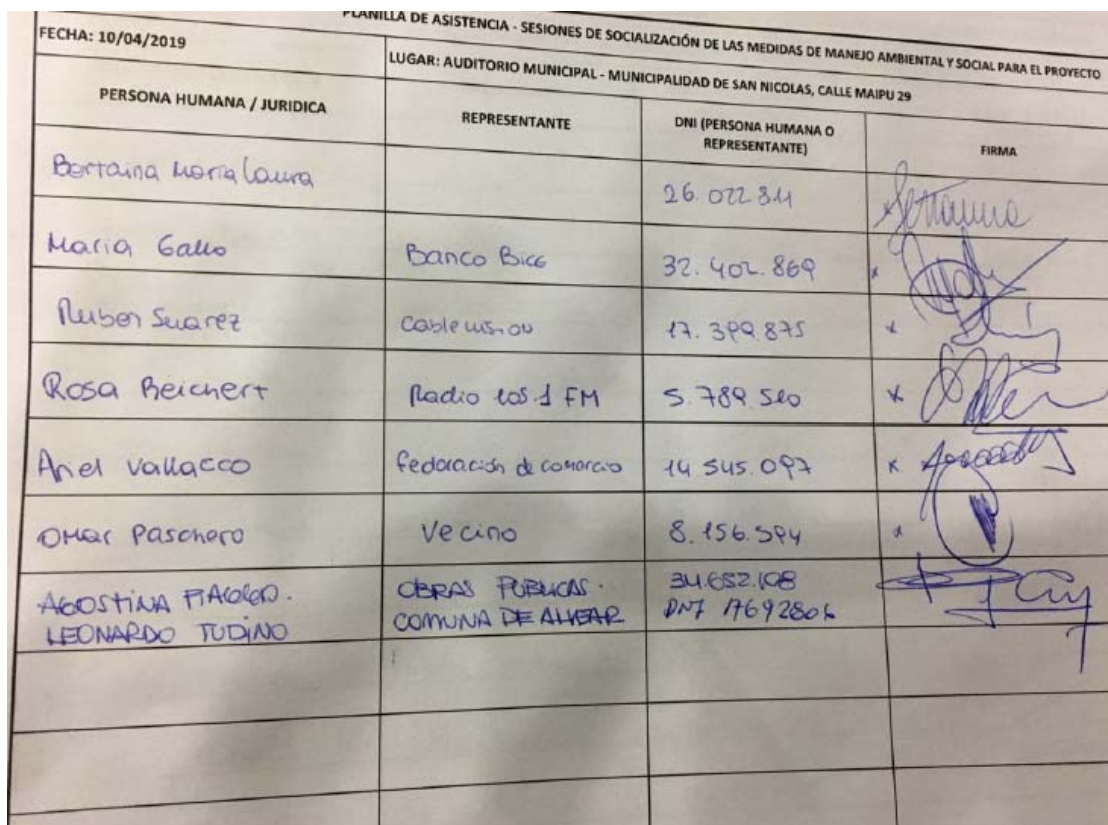 PLANILLA DE ASISTENCIA - SESIONES DE SOCIALIZACIÓN DE LAS MEDIDAS DE MANEJO AMBIENTAL Y SOCIAL PARA EL PROYECTO
FECHA: 10/04/2019
LUGAR: AUDITORIO MUNICIPAL - MUNICIPALIDAD DE SAN NICOLAS, CALLE MAIPU 29
PERSONA HUMANA / JURIDICA
REPRESENTANTE
DNI (PERSONA HUMANA O
REPRESENTANTE)
FIRMA
Bertaina Maria Laura
26.022.811
Maria Gallo Banco Bice 32.402.869
Ruben Suarez Cablevision 17.399.875
Rosa Reichert Radio 105.1 FM 5.789.510
Ariel Vallacco federación de comercio 14 545.097
OMar Paschero Vecino 8.156.594
AGOSTINA OBRAS PUBLICAS. 34.652.108
LEONARDO TUDINO COMUNA DE ALVEAR DNI 17692806